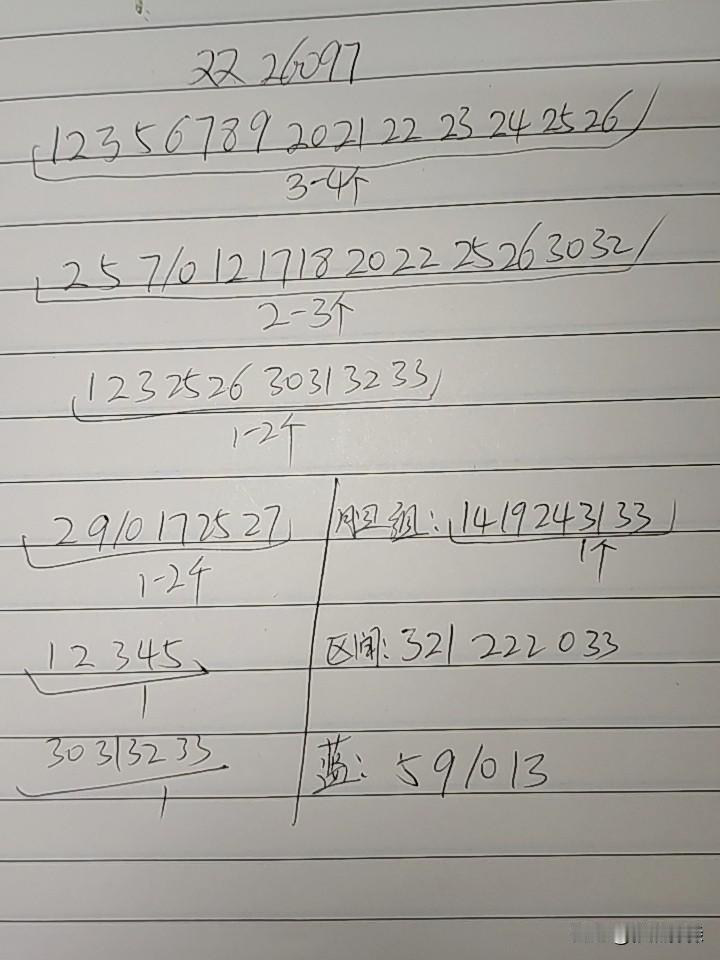 22 26097
1 2 3 5 6 7 8 9 20 21 22 23 24 25 26
3-4个
2 5 7 10 12 17 18 20 22 25 26 30 32
2-3个
1 2 3 25 26 30 31 32 33
1-2个
2 9 10 17 25 27
1-2个
胆组: 14 19 24 31 33
1个
1 2 3 4 5
1
区间: 321 222 033
30 31 32 33
1
蓝: 5 9 10 13